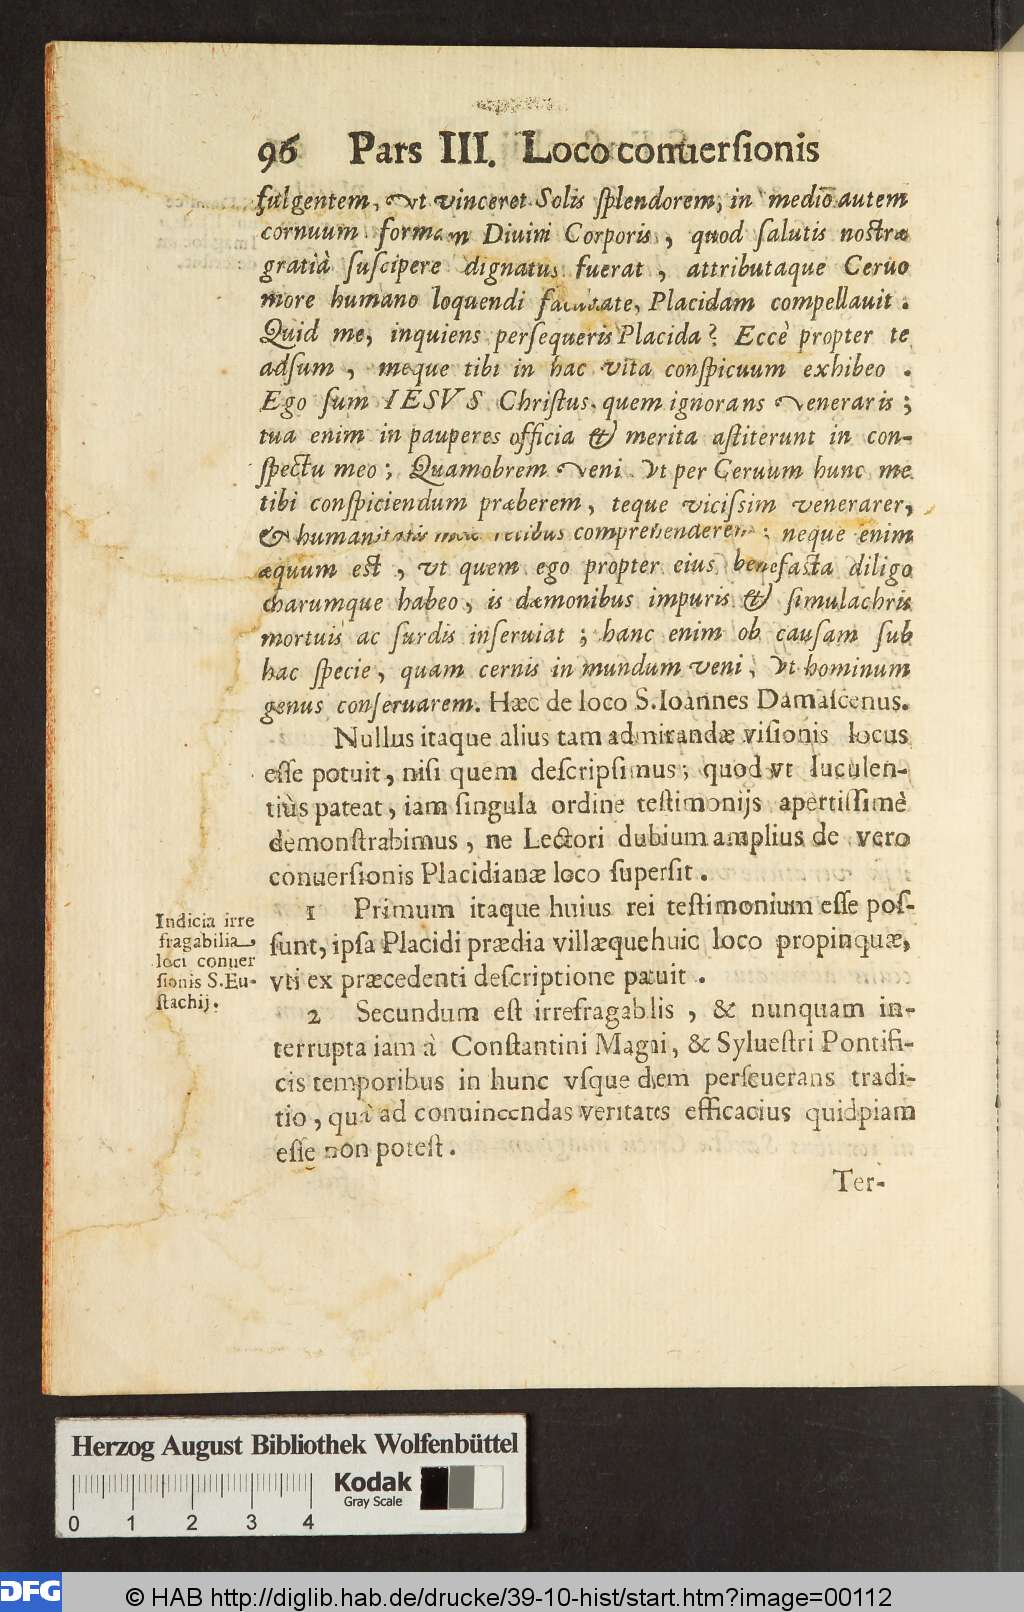 96 Pars III. Loco conuersionis
fulgentem, vt vinceret Solis splendorem; in medio autem
cornuum formam Diuini Corporis, quod salutis nostræ
gratià suscipere dignatus fuerat, attributaque Ceruo
more humano loquendi facultate, Placidam compellauit.
Quid me, inquiens persequeris Placida? Eccè propter te
adsum, meque tibi in hac vita conspicuum exhibeo.
Ego sum IESVS Christus, quem ignorans veneraris;
tua enim in pauperes officia & merita astiterunt in con-
spectu meo; Quamobrem veni vt per Ceruum hunc me
tibi conspiciendum præberem, teque vicissim venerarer,
& humanitatis meæ retibus comprehenderem; neque enim
æquum est, vt quem ego propter eius benefacta diligo
charumque habeo, is dæmonibus impuris & simulachris
mortuis ac surdis inseruiat; hanc enim ob causam sub
hac specie, quam cernis in mundum veni, vt hominum
genus conseruarem. Hæc de loco S. Ioannes Damascenus.
Nullus itaque alius tam admirandæ visionis locus
esse potuit, nisi quem descripsimus; quod vt luculen-
tiùs pateat, iam singula ordine testimonijs apertissimè
demonstrabimus, ne Lectori dubium amplius de vero
conuersionis Placidianæ loco supersit.
1 Primum itaque huius rei testimonium esse pos-
sunt, ipsa Placidi prædia villæque huic loco propinquæ,
vti ex præcedenti descriptione patuit.
Indicia irre
fragabilia
loci conuer
sionis S. Eu-
stachij.
2 Secundum est irrefragablis, & nunquam in-
terrupta iam à Constantini Magni, & Syluestri Pontifi-
cis temporibus in hunc vsque diem perseuerans tradi-
tio, quà ad conuincendas veritates efficacius quidpiam
esse non potest.
Ter-
Herzog August Bibliothek Wolfenbüttel
Kodak
Gray Scale
0 1 2 3 4
DFG
© HAB http://diglib.hab.de/drucke/39-10-hist/start.htm?image=00112